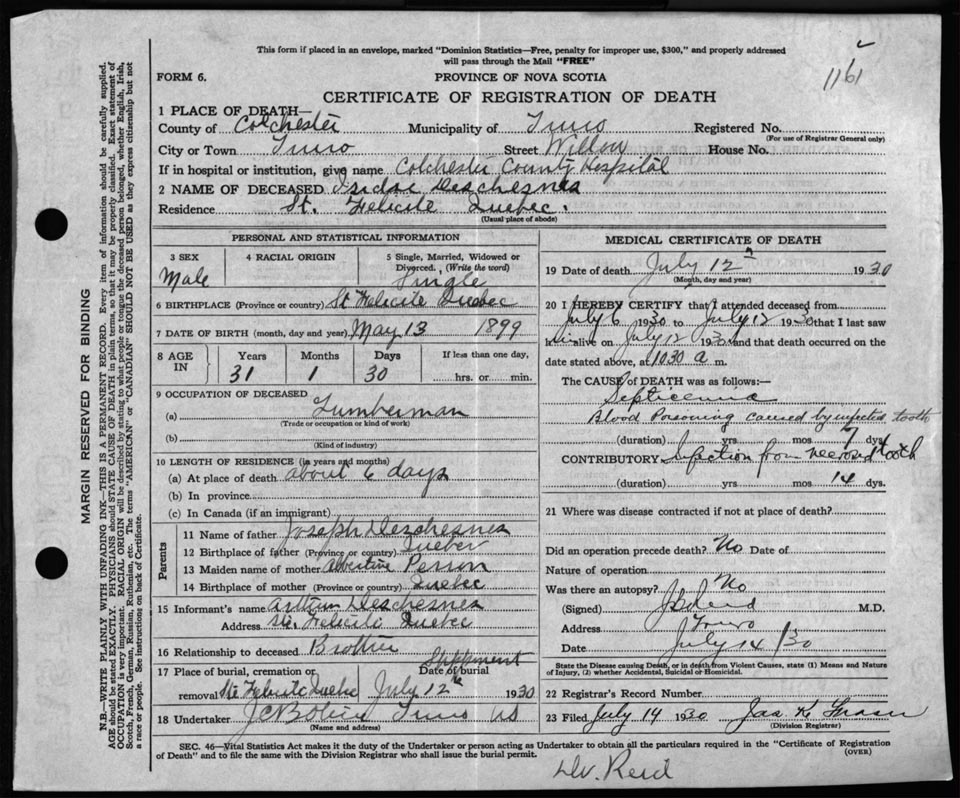 This form if placed in an envelope, marked "Dominion Statistics—Free, penalty for improper use, $300," and properly addressed
will pass through the Mail "FREE"
1161
FORM 6. PROVINCE OF NOVA SCOTIA
CERTIFICATE OF REGISTRATION OF DEATH
1 PLACE OF DEATH—
County of Colchester Municipality of Truro Registered No.
(For use of Registrar General only)
City or Town Truro Street Willow House No.
If in hospital or institution, give name Colchester County Hospital
2 NAME OF DECEASED Isidor Deschesnes
Residence St. Felicite Quebec.
(Usual place of abode)
PERSONAL AND STATISTICAL INFORMATION
3 SEX 4 RACIAL ORIGIN 5 Single, Married, Widowed or
Divorced, (Write the word)
Male Single
6 BIRTHPLACE (Province or country) St Felicite Quebec
7 DATE OF BIRTH (month, day and year) May 13 1899
8 AGE IN Years Months Days If less than one day,
31 1 30 hrs. or min.
9 OCCUPATION OF DECEASED
(a) Lumberman
(Trade or occupation or kind of work)
(b)
(Kind of industry)
10 LENGTH OF RESIDENCE (in years and months)
(a) At place of death about 6 days
(b) In province
(c) In Canada (if an immigrant)
Parents
11 Name of father Joseph Deschesnes
12 Birthplace of father (Province or country) Quebec
13 Maiden name of mother Albertine Person
14 Birthplace of mother (Province or country) Quebec
15 Informant's name Arthur Deschesnes
Address Ste. Felicite Quebec
16 Relationship to deceased Brother
17 Place of burial, cremation or Date of burial Shippment
removal Ste Felicite Quebec July 12th 1930
18 Undertaker Truro NS
(Name and address)
MEDICAL CERTIFICATE OF DEATH
19 Date of death July 12 1930
(Month, day and year)
20 I HEREBY CERTIFY that I attended deceased from
July 6 1930 to July 12 1930 that I last saw
him alive on July 12 1930 and that death occurred on the
date stated above, at 1030 a m.
The CAUSE of DEATH was as follows:—
Septicemia
Blood Poisoning caused by infected tooth
(duration) yrs. mos 7 dys.
CONTRIBUTORY Infection from necrosed tooth
(duration) yrs. mos 14 dys.
21 Where was disease contracted if not at place of death?
Did an operation precede death? No Date of
Nature of operation
Was there an autopsy? No
(Signed) M.D.
Address Truro
Date July 14 /30
State the Disease causing Death, or in death from Violent Causes, state (1) Means and Nature
of Injury, (2) whether Accidental, Suicidal or Homicidal.
22 Registrar's Record Number
23 Filed July 14 1930 Jas K
(Division Registrar)
SEC. 46—Vital Statistics Act makes it the duty of the Undertaker or person acting as Undertaker to obtain all the particulars required in the "Certificate of Registration
of Death" and to file the same with the Division Registrar who shall issue the burial permit. (OVER)
Dr. Reid
MARGIN RESERVED FOR BINDING
N.B.—WRITE PLAINLY WITH UNFADING INK—THIS IS A PERMANENT RECORD. Every item of information should be carefully supplied.
AGE should be stated EXACTLY. PHYSICIANS should STATE CAUSE OF DEATH in plain terms, so that it may be properly classified. Exact statement of
OCCUPATION is very important. RACIAL ORIGIN will be described by stating to what people or tongue the deceased person belonged, whether English, Irish,
Scotch, French, German, Russian, Ruthenian, etc. The terms "AMERICAN" or "CANADIAN" SHOULD NOT BE USED as they express citizenship but not
a race or people. See instructions on back of Certificate.